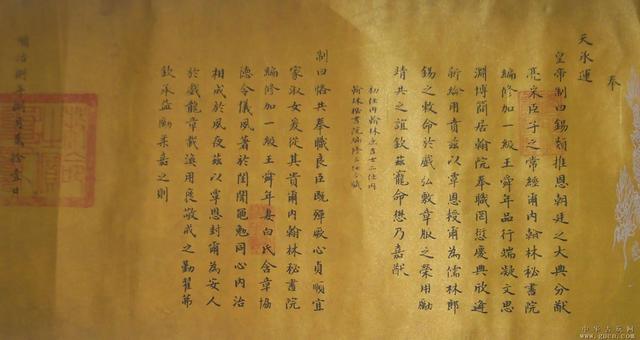 奉
天承運
皇帝制曰錫類推恩朝廷之大典分猷
亮采臣子之常經爾内翰林秘書院
編修加一級王舜年品行端凝文思
淵博簡居翰院奉職罔愆慶典欣逢
新綸用賁兹以覃恩授爾為儒林郎
錫之敕命於戲弘敷章服之榮用勵
靖共之誼欽兹寵命懋乃嘉猷
初任内翰林庶吉士二任内
翰林秘書院編修三任今職
制曰恪共奉職良臣既殫厥心貞順宜
家淑女爰從其貴爾内翰林秘書院
編修加一級王舜年妻白氏含章協
德令儀夙著於閨闈黽勉同心内治
相成於夙夜兹以覃恩封爾為安人
於戲龍章載渥用褒敬戒之勤翟茀
欽承益勵柔嘉之則
順治捌年捌月貳拾壹日
中华古玩网
www.gucn.com